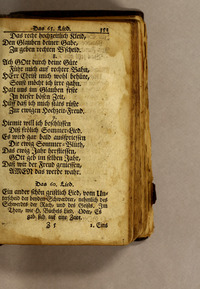 Das 65. Lied. 353
Das recht hochzeitlich Kleid,
Den Glauben deiner Gabe,
Zu geben rechten B'scheid.
Ach GOtt durch deine Güte
Führ mich auf rechter Bahn,
HErr Christ mich wohl behüte,
Sonst möcht ich irre gahn.
Halt mich im Glauben feste
In dieser bösen Zeit,
Hilf daß ich mich stäts rüste
Zur ewigen Hochzeit-Freud.
Hiemit will ich beschliessen
Diß frölich Sommer-Lied,
Es wird gar bald ausspriessen
Die ewig Sommer-Blüth,
Das ewig Jahr herfliessen,
GOtt geb im selben Jahr,
Daß wir der Freud geniessen,
AMEN das werde wahr.
Lied.
Ein ander schön geistlich Lied, vom Un-
terscheid der beyden Schwerdter, nehmlich des
Schwerdts der Rach, und des Geists. Im
Thon,
gab sich auf eine Zeit.
Z 5 1. Eins